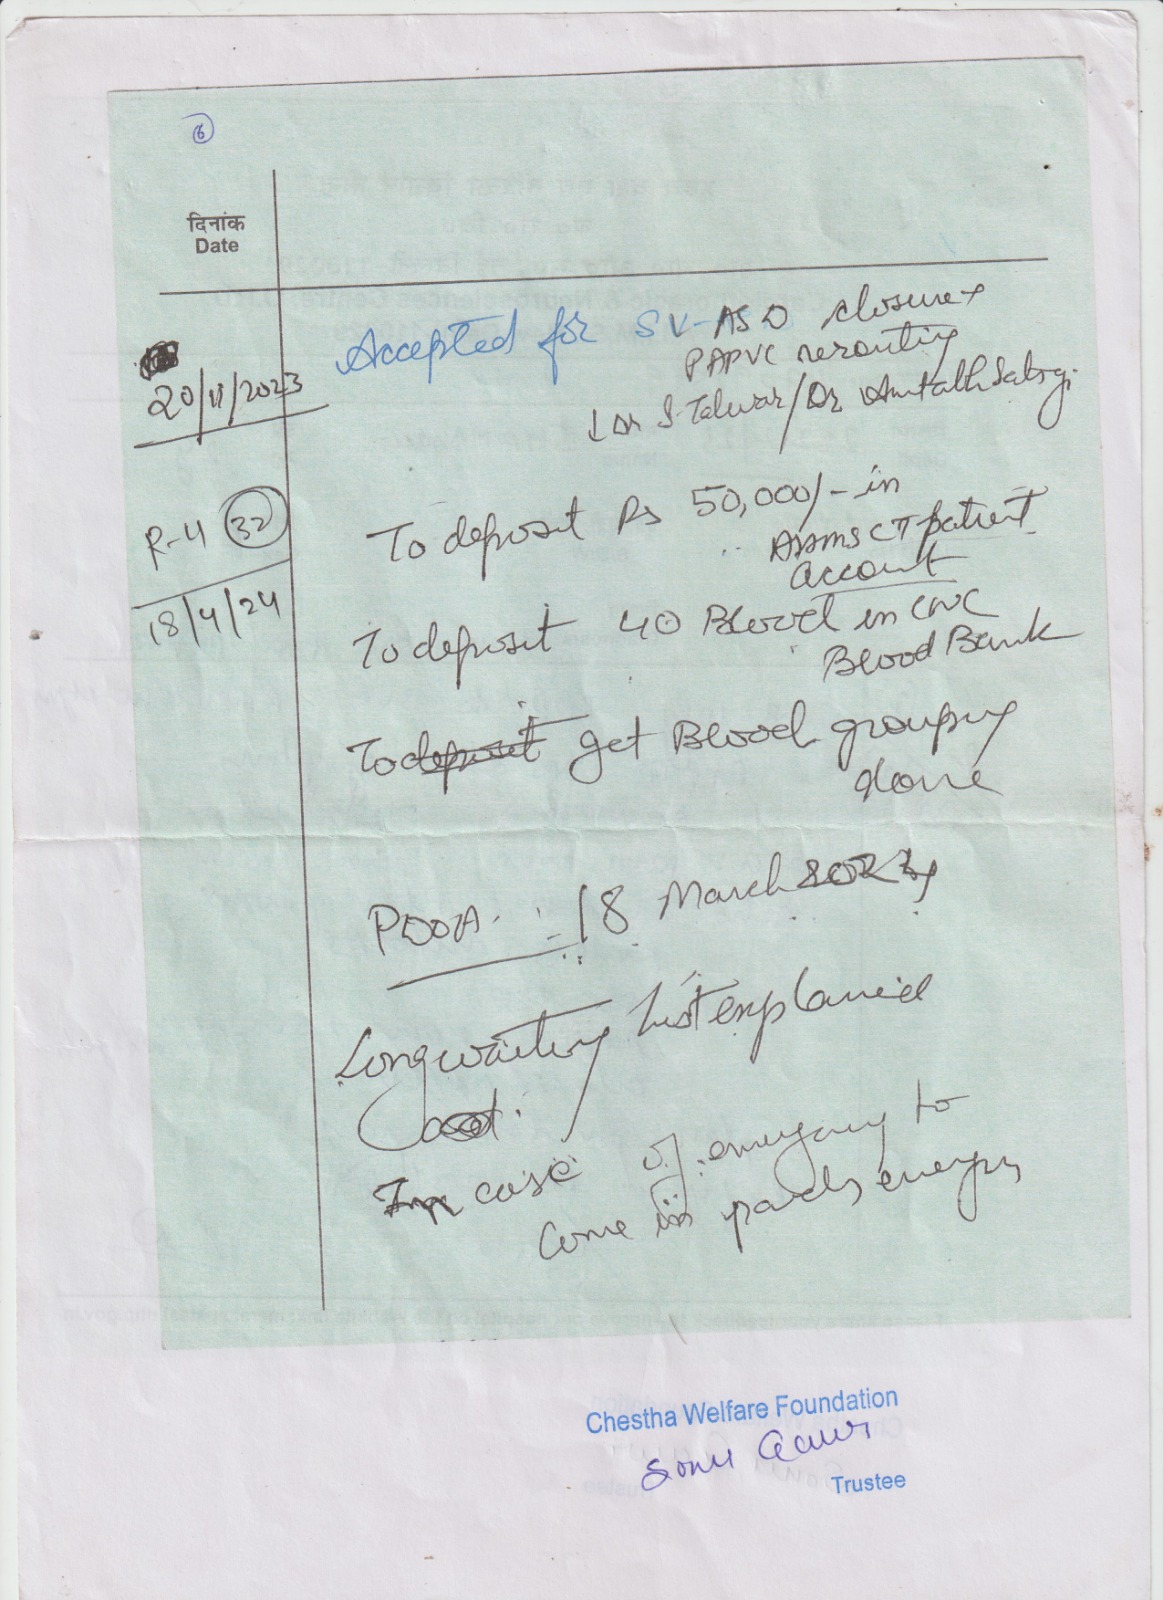 6
दिनांक
Date
20/11/2023
R-4 32
18/4/24
Accepted for SV-ASD closure +
PAPVC rerouting
↓ Dr S. Talwar / Dr
To deposit Rs 50,000/- in
AIIMS CT patient
account
To deposit 40 Blood in CNC
Blood Bank
To deposit get Blood grouping
done
PDOA :- 18 March
Long waiting list explained
In case of emergency to
come in
Chestha Welfare Foundation
Sonu
Trustee